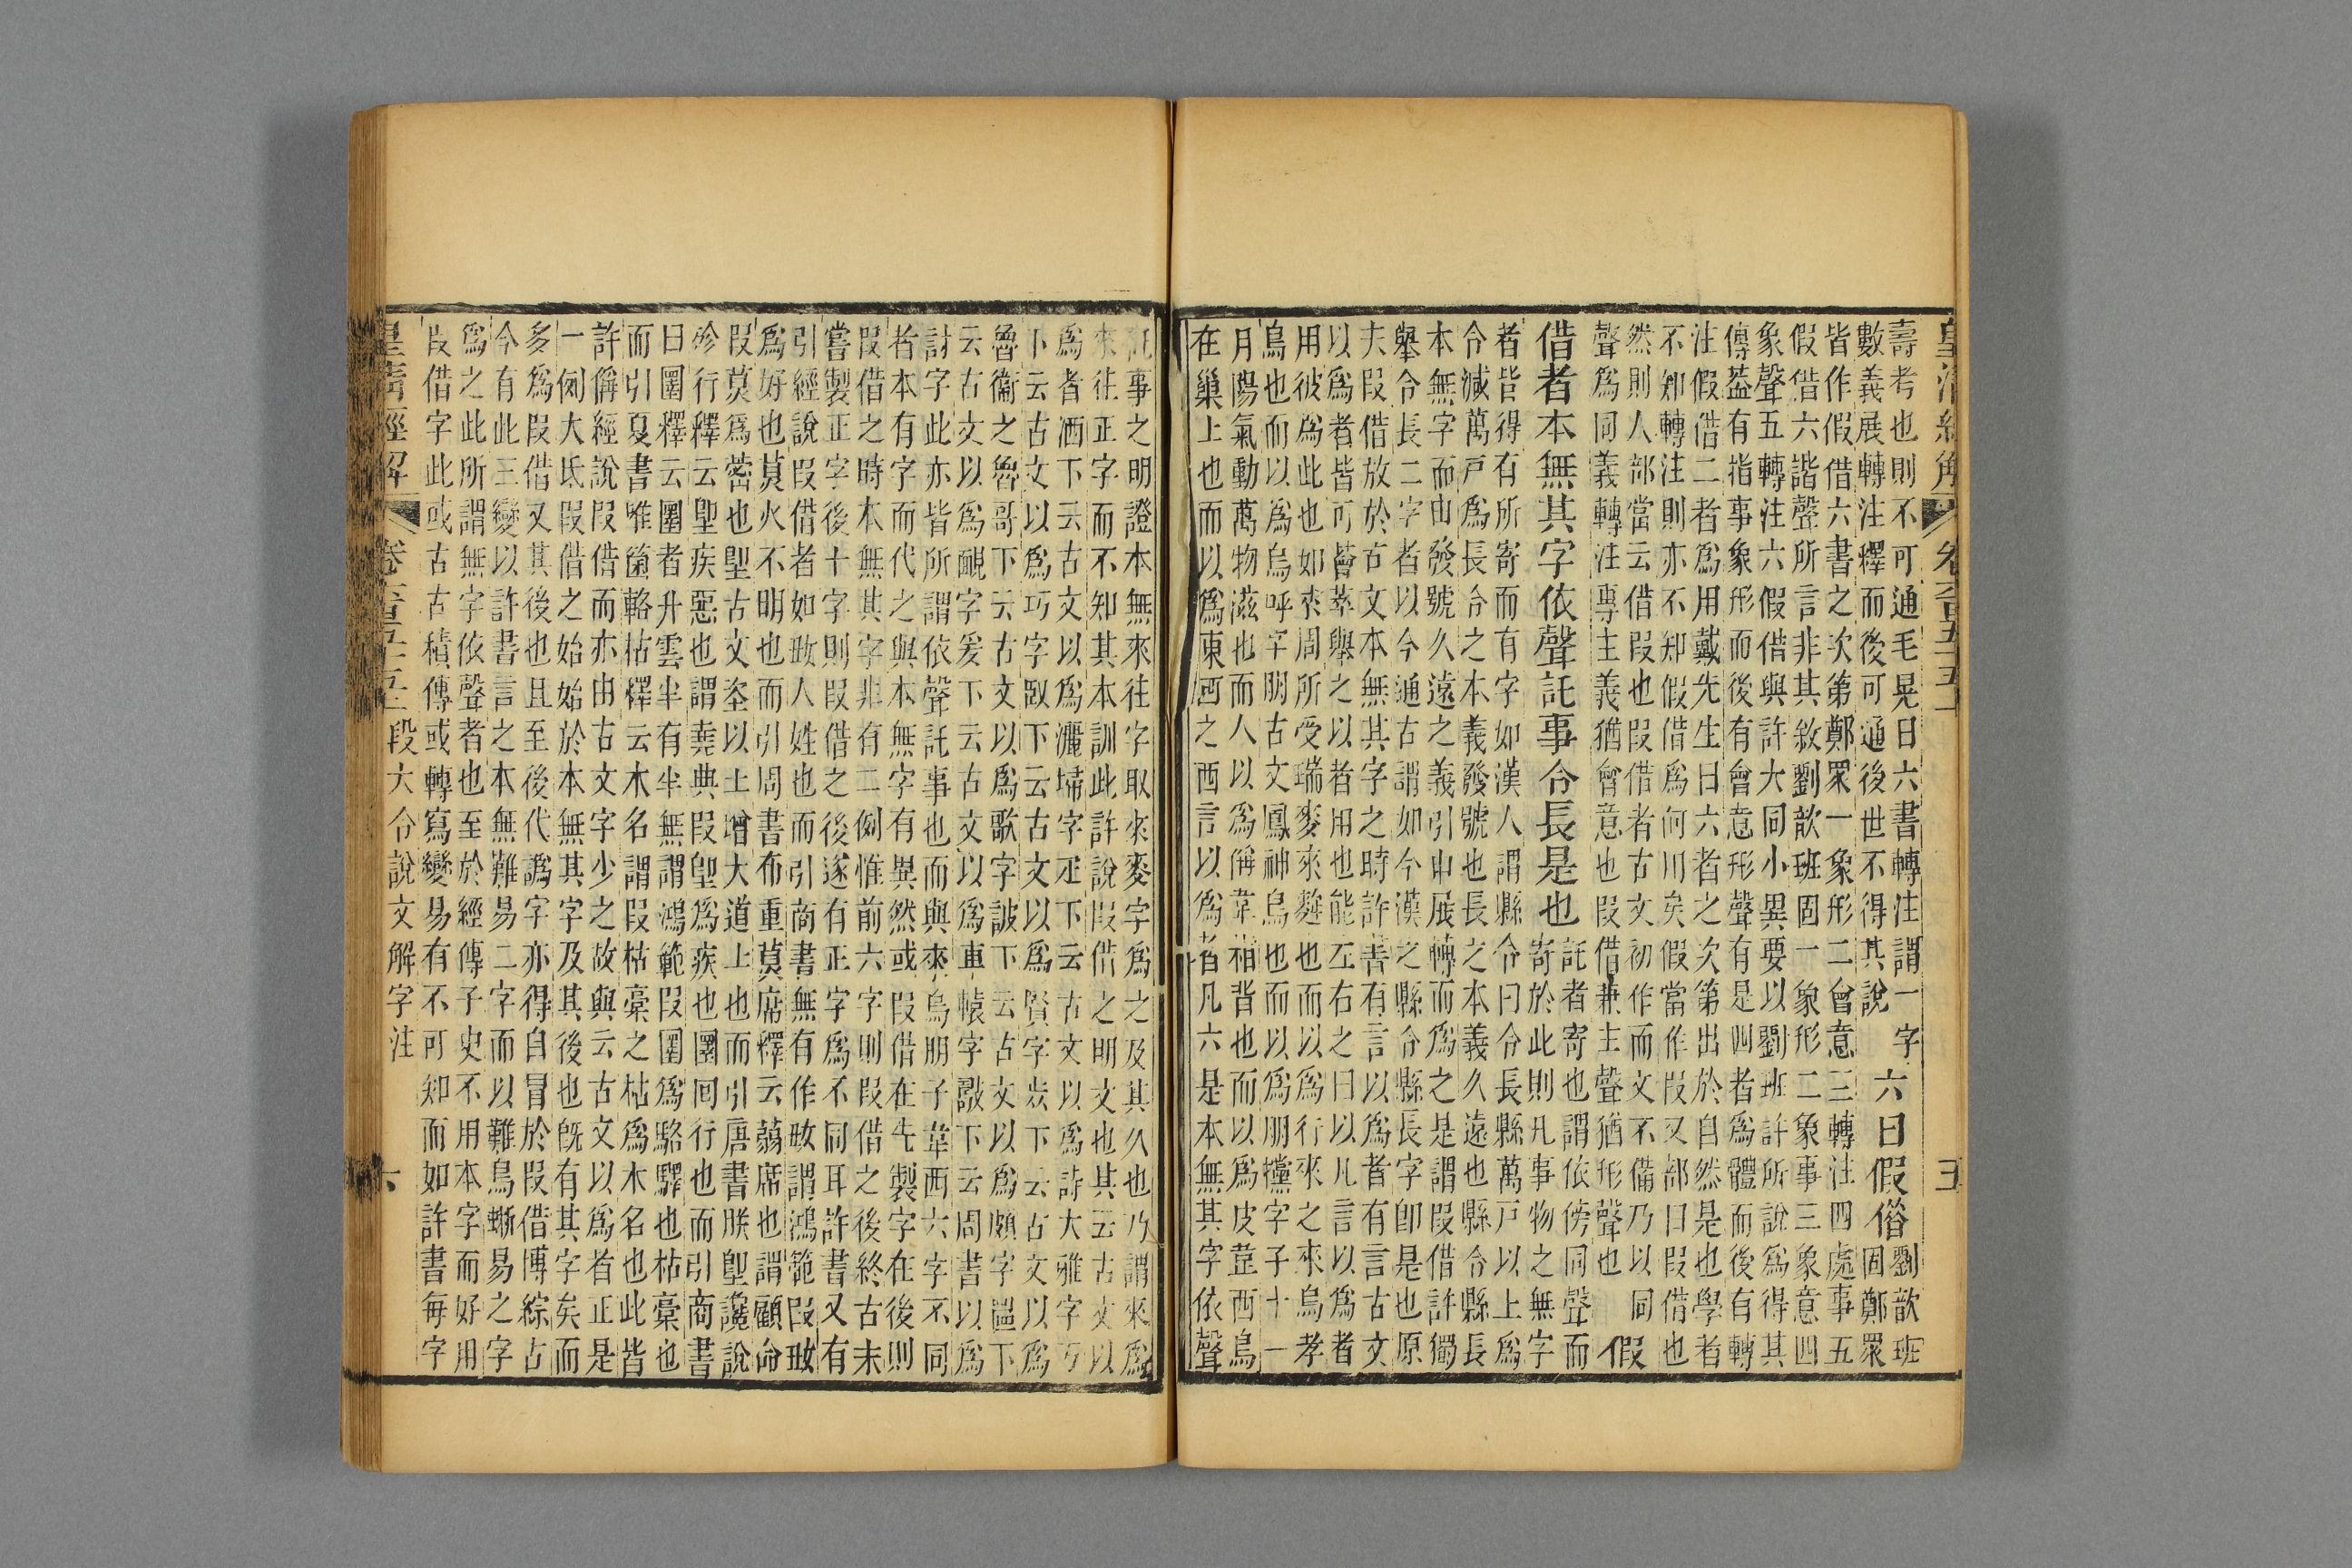 壽考也則不可通毛晃曰六書轉注謂一字
數義展轉注釋而後可通後世不得其說
六曰假借
劉歆班
固鄭眾
皆作假借六書之次第鄭眾一象形二會意三轉注四處事五
假借六諧聲所言非其敘劉歆班固一象形二象事三象意四
象聲五轉注六假借與許大同小異要以劉班許所說爲得其
傳葢有指事象形而後有會意形聲有是四者爲體而後有轉
注假借二者爲用戴先生曰六者之次第出於自然是也學者
不知轉注則亦不知假借爲何用矣假當作叚又部曰叚借也
然則人部當云借叚也叚借者古文初作而文不備乃以同
聲爲同義轉注專主義猶會意也叚借兼主聲猶形聲也
假
借者本無其字依聲託事令長是也
託者寄也謂依傍同聲而
寄於此則凡事物之無字
者皆得有所寄而有字如漢人謂縣令曰令長縣萬戶以上爲
令減萬戶爲長令之本義發號也長之本義久遠也縣令縣長
本無字而由發號久遠之義引申展轉而爲之是謂叚借許獨
舉令長二字者以今通古謂如今漢之縣令縣長字卽是也原
夫叚借放於古文本無其字之時許書有言以爲者有言古文
以爲者皆可薈萃舉之以者用也能左右之曰以凡言以爲者
用彼爲此也如來周所受瑞麥來麰也而以爲行來之來烏孝
烏也而以爲烏呼字朋古文鳳神烏也而以爲朋攩字子十一
月陽氣動萬物滋也而人以爲偁韋相背也而以爲皮韋西烏
在巢上也而以爲東西之西言以爲者凡六是本無其字依聲
託事之明證本無來往字取來麥字爲之及其久也乃謂來爲
來往正字而不知其本訓此許說叚借之明文也其云古文以
爲者洒下云古文以爲灑埽字疋下云古文以爲詩大雅字丂
下云古文以爲巧字臤下云古文以爲賢字下云古文以爲
魯衞之魯哥下云古文以爲歌字詖下云古文以爲頗字下
云古文以爲靦字爰下云古文以爲車轅字下云周書以爲
討字此亦皆所謂依聲託事也而與來烏朋子韋西六字不同
者本有字而代之與本無字有異然或叚借在先製字在後則
叚借之時本無其字非有二例惟前六字則叚借之後終古未
嘗製正字後十字則叚借之後遂有正字爲不同耳許書又有
引經說叚借者如𢻃人姓也而引商書無有作𢻃謂鴻範叚𢻃
爲好也莫火不明也而引周書布重莫席釋云蒻席也謂顧命
叚莫爲蔑也堲古文垐以土增大道上也而引唐書朕堲讒說
殄行釋云堲疾惡也謂堯典叚堲爲疾也圛回行也而引商書
曰圛釋云圛者升雲半有半無謂鴻範叚圛爲駱驛也枯槀也
而引夏書唯箘輅枯釋云木名謂叚枯槀之枯爲木名也此皆
許偁經說叚借而亦由古文字少之故與云古文以爲者正是
一例大氐叚借之始始於本無其字及其後也旣有其字矣而
多爲叚借又其後也且至後代譌字亦得自冒於叚借博綜古
今有此三變以許書言之本無難易二字而以難鳥蜥易之字
爲之此所謂無字依聲者也至於經傳子史不用本字而好用
叚借字此或古古積傳或轉寫變易有不可知而如許書每字
皇清經解 卷六百五十五上 段大令說文解字注 六